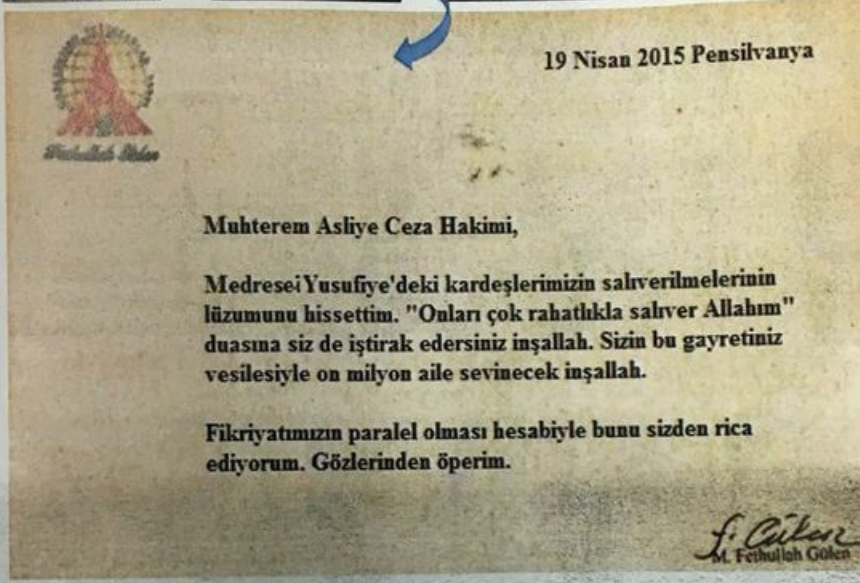 19 Nisan 2015 Pensilvanya
Muhterem Asliye Ceza Hakimi,
Medresei Yusufiye'deki kardeşlerimizin salıverilmelerinin
lüzumunu hissettim. "Onları çok rahatlıkla salıver Allahım"
duasına siz de iştirak edersiniz inşallah. Sizin bu gayretiniz
vesilesiyle on milyon aile sevinecek inşallah.
Fikriyatımızın paralel olması hesabiyle bunu sizden rica
ediyorum. Gözlerinden öperim.
f. Gülen
M. Fethullah Gülen